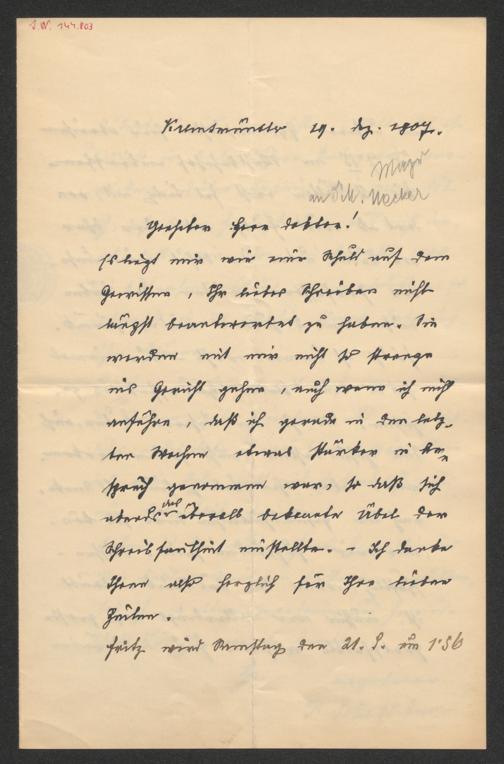 I.N. 144.803
Kremsmünster 19. Dez. 1907.
Mayr
an M. Necker
Geehrter Herr Doktor!
Es liegt mir wie eine Schuld auf dem
Gewissen, Ihr liebes Schreiben nicht
längst beantwortet zu haben. Sie
werden mit mir nicht so strenge
ins Gericht gehen, auch wenn ich nicht
anführe, daß ich gerade in den letz-
ten Wochen etwas stärker in An-
spruch genommen war, so daß sich
abends das überall bekannte Übel der
Schreibfaulheit einstellte. – Ich danke
Ihnen also herzlich für Ihre lieben
Zeilen.
Fritz wird Samstag den 21. d. um 1·56